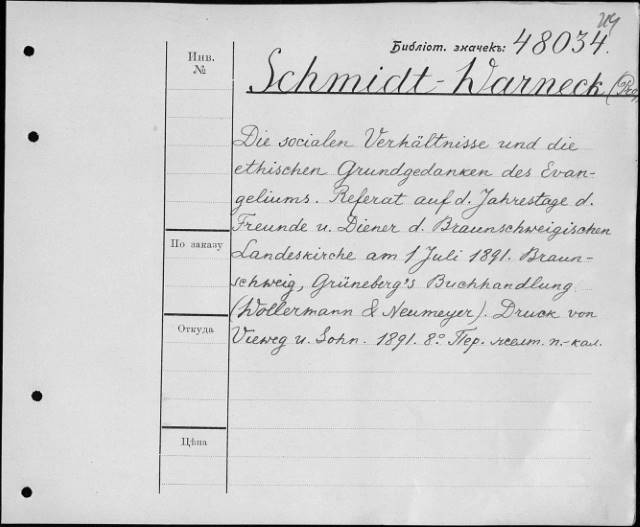 Библіот. значекъ: 48034.
Инв.
№
Schmidt-Warneck
Die socialen Verhältnisse und die
ethischen Grundgedanken des Evan-
geliums. Referat auf d. Jahrestage d.
Freunde u. Diener d. Braunschweigischen
По заказу
Landeskirche am 1 Juli 1891. Braun-
schweig, Grüneberg's Buchhandlung
(Wollermann & Neumeyer). Druck von
Откуда
Vieweg u. Sohn. 1891. 8º Пер. желт. п.-кал.
Цѣна